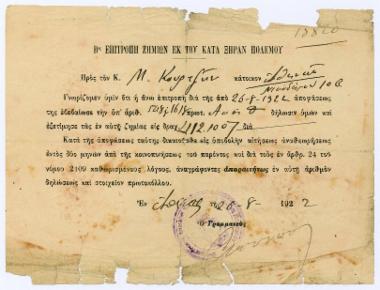 Βα ΕΠΙΤΡΟΠΗ ΖΗΜΙΩΝ ΕΚ ΤΟΥ ΚΑΤΑ ΞΗΡΑΝ ΠΟΛΕΜΟΥ
Πρὸς τὸν Κ. Μ. κάτοικον
Γνωρίζομεν ὑμῖν ὅτι ἡ ἄνω ἐπιτροπὴ διὰ τῆς ἀπὸ 26-8-1922 ἀποφάσεως
της ἐξεδίκασε τὴν ὑπ' ἀριθ. πρωτ. δήλωσιν ὑμῶν καὶ
ἐξετίμησε τὰς ἐν αὐτῇ ζημίας εἰς δραχ. διὰ
Κατὰ τῆς ἀποφάσεως ταύτης δικαιοῦσθε εἰς ὑποβολὴν αἰτήσεως ἀναθεωρήσεως
ἐντὸς δύο μηνῶν ἀπὸ τῆς κοινοποιήσεως τοῦ παρόντος καὶ διὰ τοὺς ἐν ἄρθρ. 24 τοῦ
νόμου 2109 καθωρισμένους λόγους, ἀναγράφοντες ἀπαραιτήτως ἐν αὐτῇ ἀριθμὸν
δηλώσεως καὶ στοιχεῖον πρωτοκόλλου.
Ἐν τῇ 26-8 1922
Ὁ Γραμματεὺς